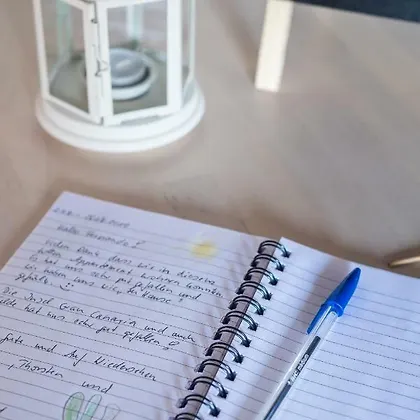 Hallo Fernando!
Vielen Dank dass wir in diesem
tollen Appartement wohnen konnten.
Es hat uns sehr gut gefallen und
wir haben uns wie zu Hause
gefühlt. :)
Die Insel Gran Canaria und auch
hat uns sehr gut gefallen!
Gute und Auf Wiedersehen
Thorsten und